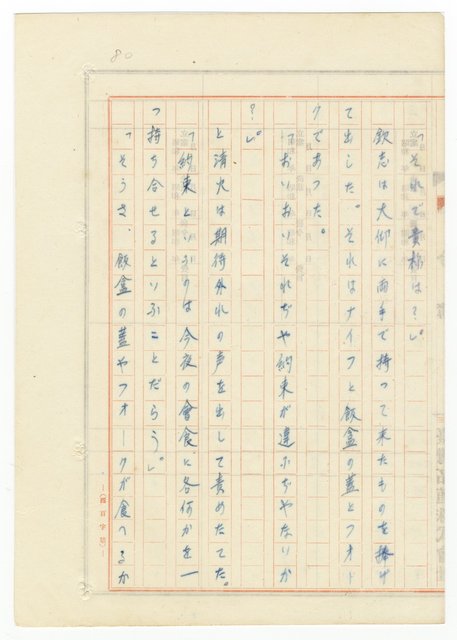 80
「それで貴様は？」。
欽志は大仰に両手で持って来たものを捧げ
て出した。それはナイフと飯盒の蓋とフオー
クであった。
「おいおいそれぢや約束が違ふぢやないか
？」。
と清火は期待外れの声を出して責めたてた。
「約束といふのは今夜の會食に各何かを一
つ持ち合せるといふことだらう」。
「そうさ、飯盒の蓋やフオークが食へるか